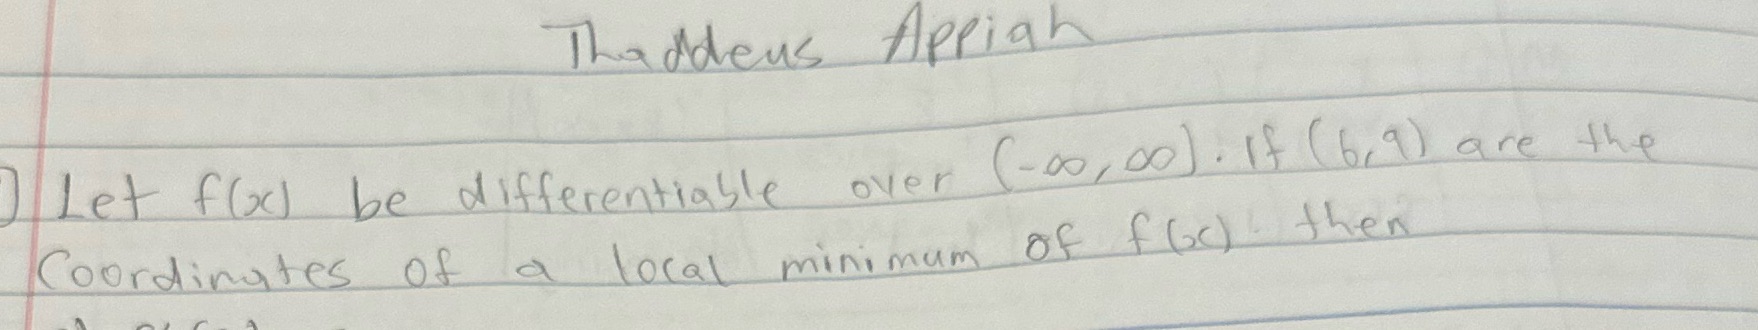 Thaddeus Appiah
Let f(x) be differentiable over (-∞, ∞). If (6,9) are the
Coordinates of a local minimum of f(x). then